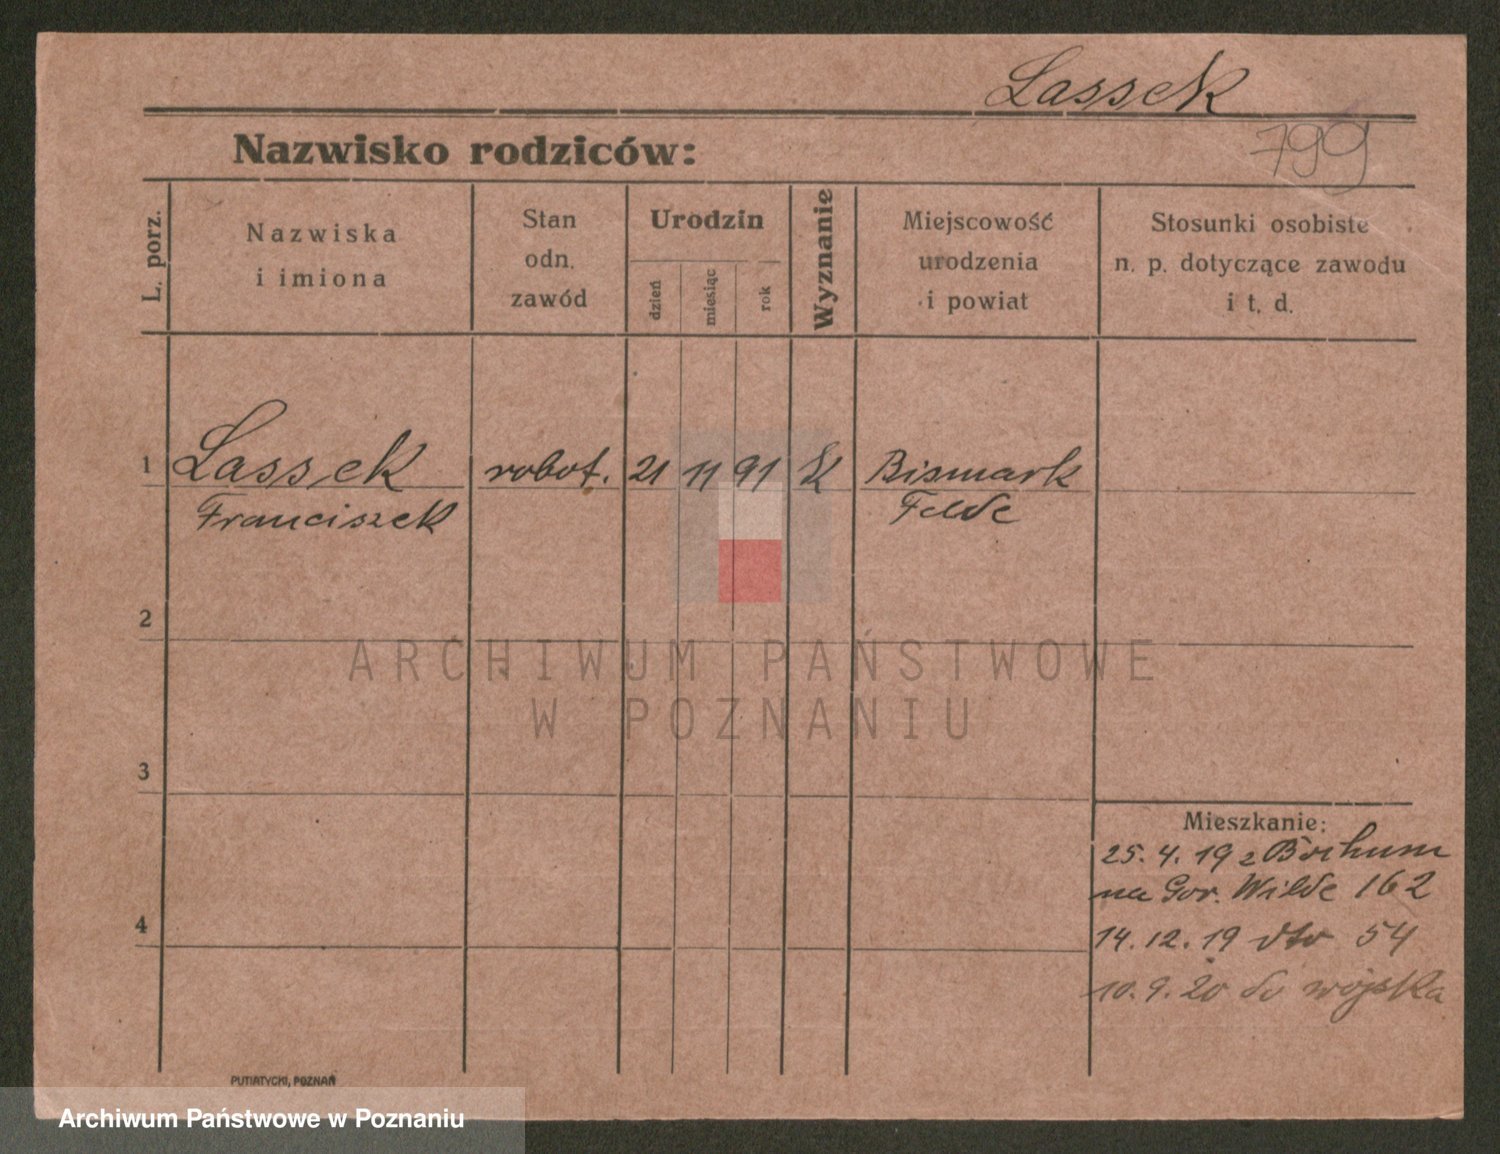 Lassek
799
Nazwisko rodziców:
L. porz.
Nazwiska
i imiona
Stan
odn.
zawód
Urodzin
dzień
miesiąc
rok
Wyznanie
Miejscowość
urodzenia
i powiat
Stosunki osobiste
n. p. dotyczące zawodu
i t. d.
1 Lassek robot. 21 11 91 k Bismark
Franciszek Felde
2
ARCHIWUM PAŃSTWOWE
W POZNANIU
3
Mieszkanie:
25. 4. 19 z Bochum
na Gor. Wilde 162
4
14. 12. 19 dto 54
10. 9. 20 do wojska
PUTIATYCKI, POZNAŃ
Archiwum Państwowe w Poznaniu